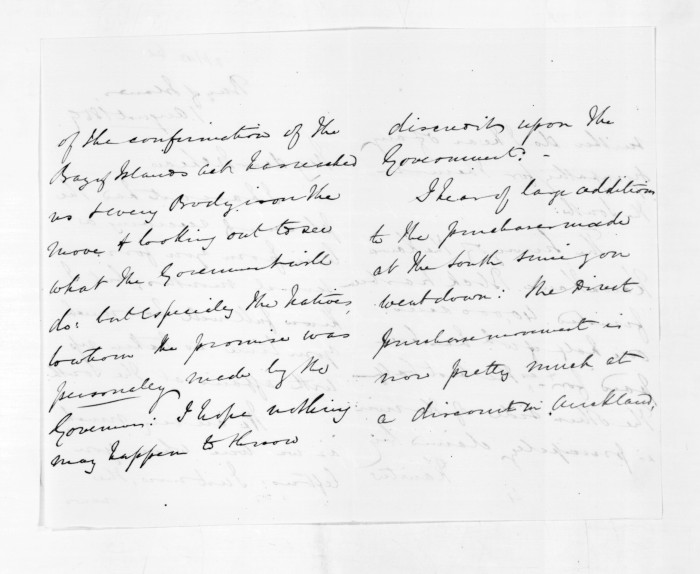 of the confirmation of the
Bay of Islands act has reached
us & every Body is on the
move & looking out to see
what the Government will
do: but Especiley the Natives,
to whom the promise was
personeley made by the
Governor: I hope nothing
may happen to throw
discredit upon the
Government? -
I hear of large additions
to the purchases made
at the South since you
went down: The Direct
purchase movement is
now pretty much at
a discount in Auckland,